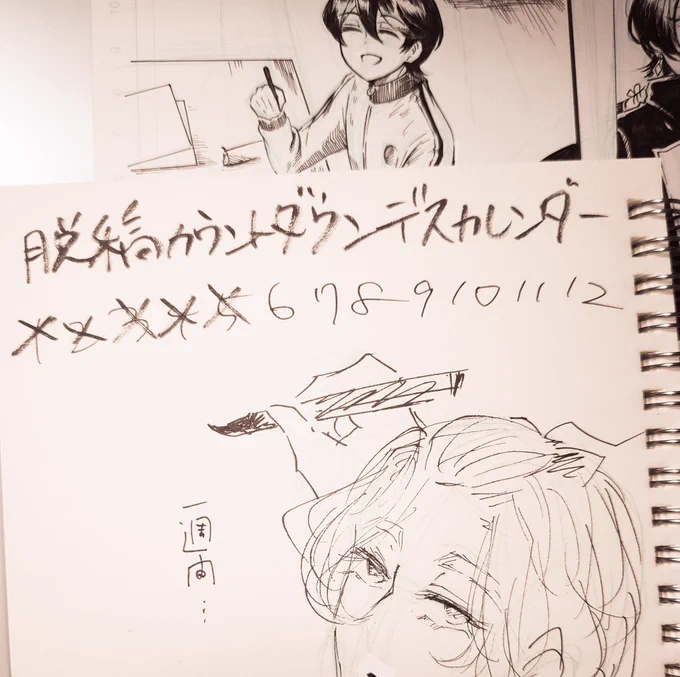 脱稿カウントダウンデスカレンダー
1 2 3 4 5 6 7 8 9 10 11 12
一週間…